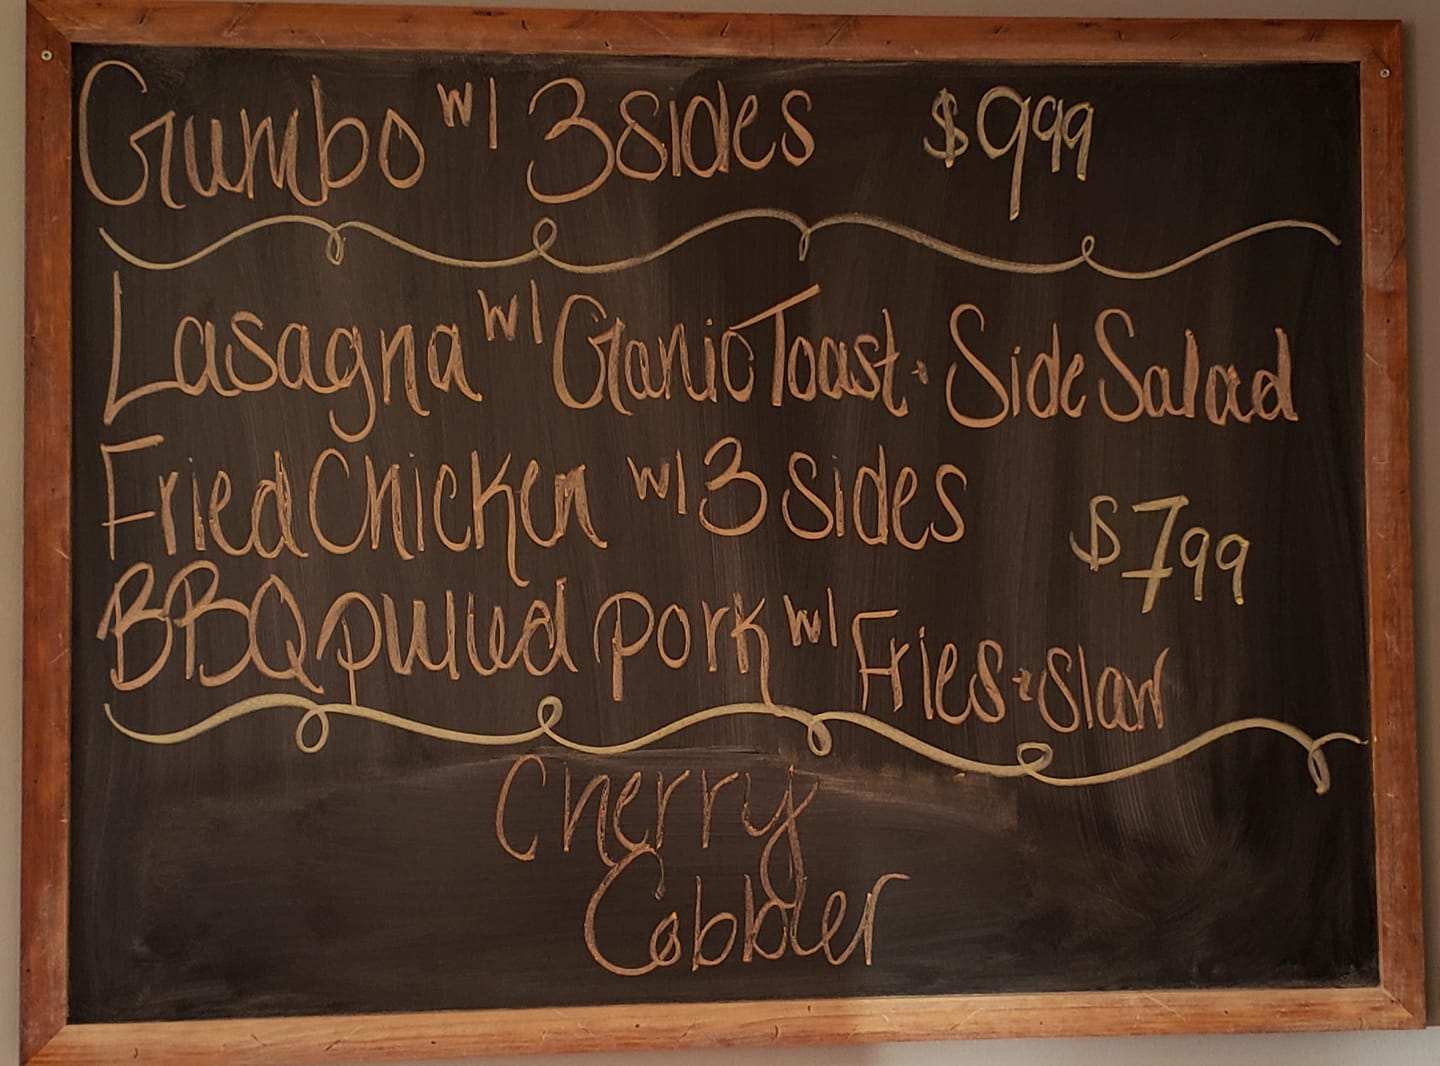 Gumbo w/ 3 sides $9.99
Lasagna w/ Garlic Toast + Side Salad
Fried Chicken w/ 3 sides
$7.99
BBQ pulled pork w/ Fries + slaw
Cherry
Cobbler